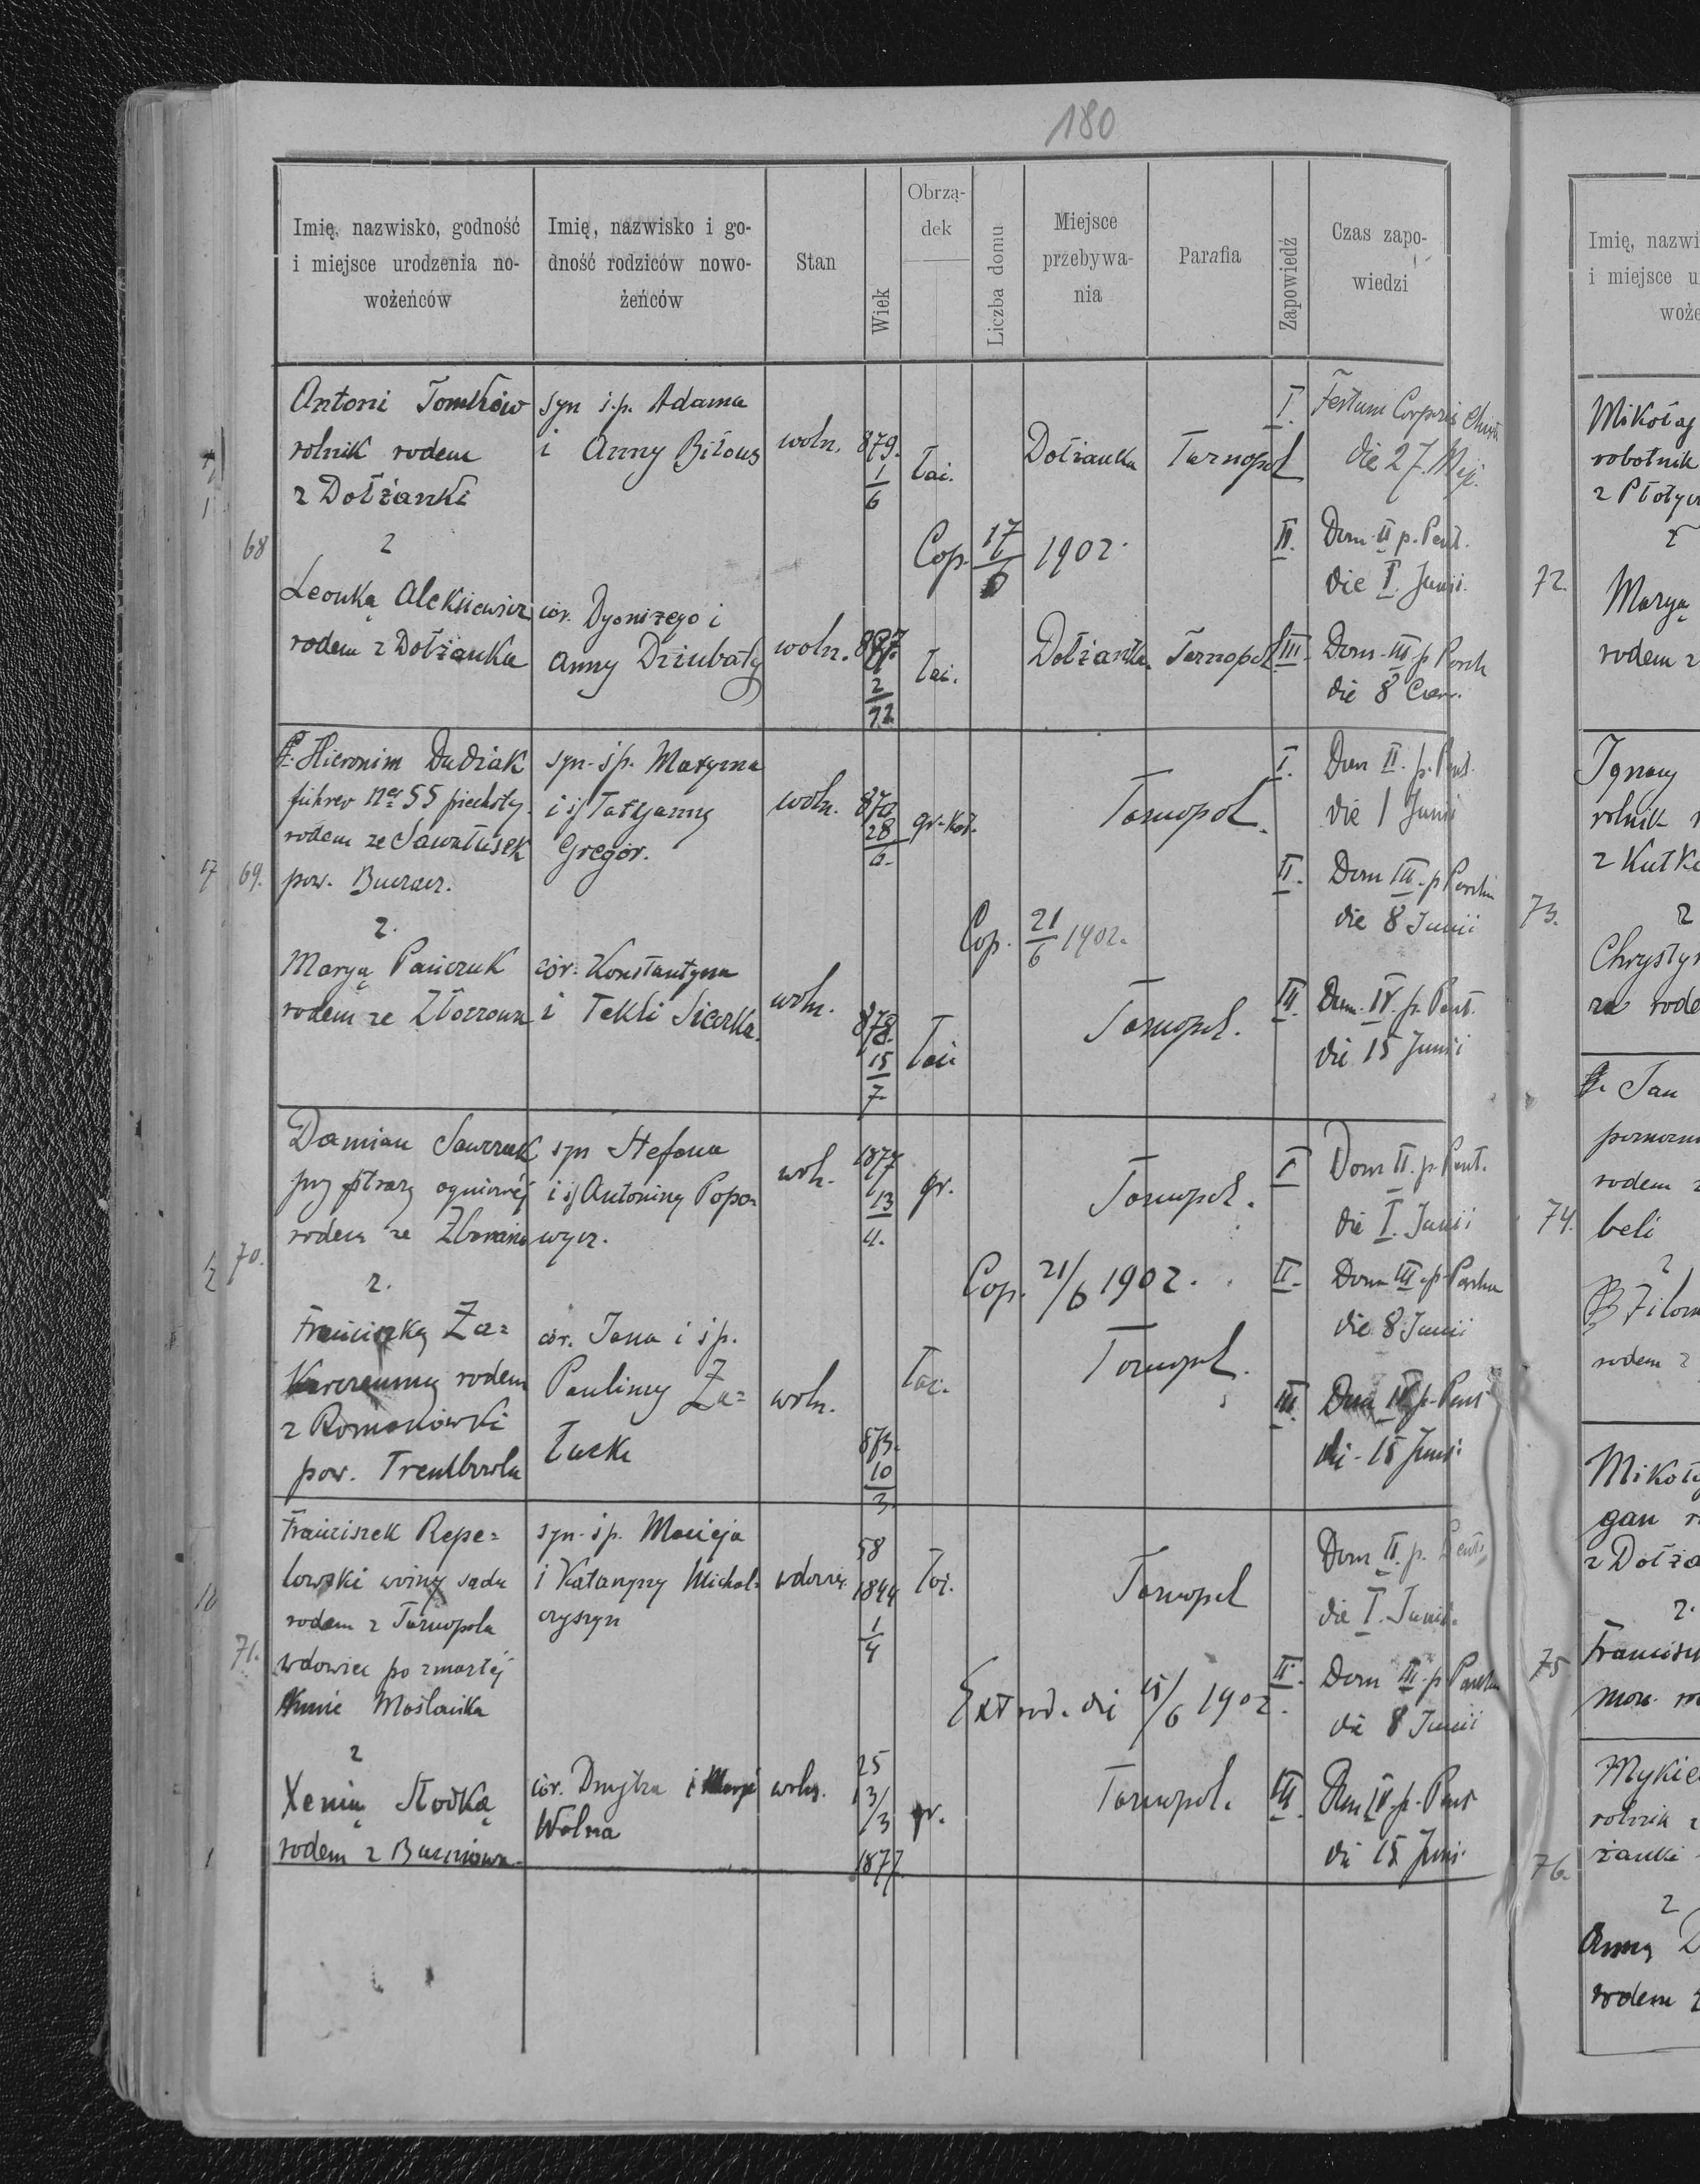 180
Imię, nazwisko, godność
i miejsce urodzenia no-
wożeńców
Imię, nazwisko i go-
dność rodziców nowo-
żeńców
Stan
Wiek
Obrzą-
dek
Liczba domu
Miejsce
przebywa-
nia
Parafia
Zapowiedź
Czas zapo-
wiedzi
68
Antoni Tomków
rolnik rodem
z Dołżanki
z
Leonką Aleksiewicz
rodem z Dołżanka
syn ś.p. Adama
i Anny Biłous
cór. Dyonizego i
Anny Dziubaty
woln.
woln.
879.
1
6
887.
2
12
łać.
Cop. 17/6 1902.
łać.
Dołżanka
Tarnopol
Dołżanka
Tarnopol
I. Festum Corporis Christi
die 27. Maj.
II. Dom. II p. Pent.
die I. Junii.
III. Dom. III. p Pench
die 8 Czer.
69.
Hieronim Dudiak
führer 55 piechoty
rodem ze Sawałusek
pow. Buczacz.
z.
Maryą Pańczuk
rodem ze Złoczowa
syn ś.p. Maxyma
i Tatyanny
Gregor.
cór. Konstantyna
i Tekli Sicerka.
woln.
woln.
870
28
6.
878.
15
7
gr.-kat.
Cop. 21/6 1902.
łać
Tarnopol.
Tarnopol.
I. Dom II. p. Pent.
die 1 Junii
II. Dom III. p Penth
die 8 Junii
III. Dom. IV. p. Pent.
die 15 Junii
70.
Damian Sawczuk
przy straży ogniowéj
rodem ze Zbaraża
z.
Franciszką Za=
rodem
z Romanówki
pow. Trembowla
syn Stefana
i Antoniny Popo=
wycz.
cór. Jana i ś.p.
Pauliny Za=
łucka
woln.
woln.
1877
13
4.
873.
10
3
gr.
Cop. 21/6 1902.
łać.
Tarnopol.
Tarnopol.
I Dom II. p. Pent.
die I. Junii
II. Dom III. p. Penth
die 8 Junii
III. Dom IV p. Pent
die 15 Junii
71.
Franciszek Repe=
lowski woźny sądu
rodem z Tarnopola
wdowiec po zmarłéj
Annie Maślanka
z
Xenią Słodką
rodem z Bucniowa.
syn ś.p. Macieja
i Katarzyny Michal=
czyszyn
cór. Dmytra i Maryi
Wolna
wdowiec
woln.
58
1844
1
4
25
13/3
1877
łać.
Extrad. die 15/6 1902.
gr.
Tarnopol
Tarnopol.
Dom II. p. Pent.
die I. Junii.
II. Dom III. p Penth
die 8 Junii
III. Dom IV. p. Pent
die 15 Junii
Imię, nazwi
i miejsce u
woże
72.
Mikołaj
robotnik
z Płotycz
z
Maryą
rodem z
73.
Ignacy
rolnik
z Kutko
z
Chrystyn
rodem
74.
Jan
rodem z
beli
z
Filom
rodem z
75
Mikoła
gan
z Dołża
z.
Francisz
mon. ro
76.
Mykie
rolnik z
żanki
z
Anną D
rodem z